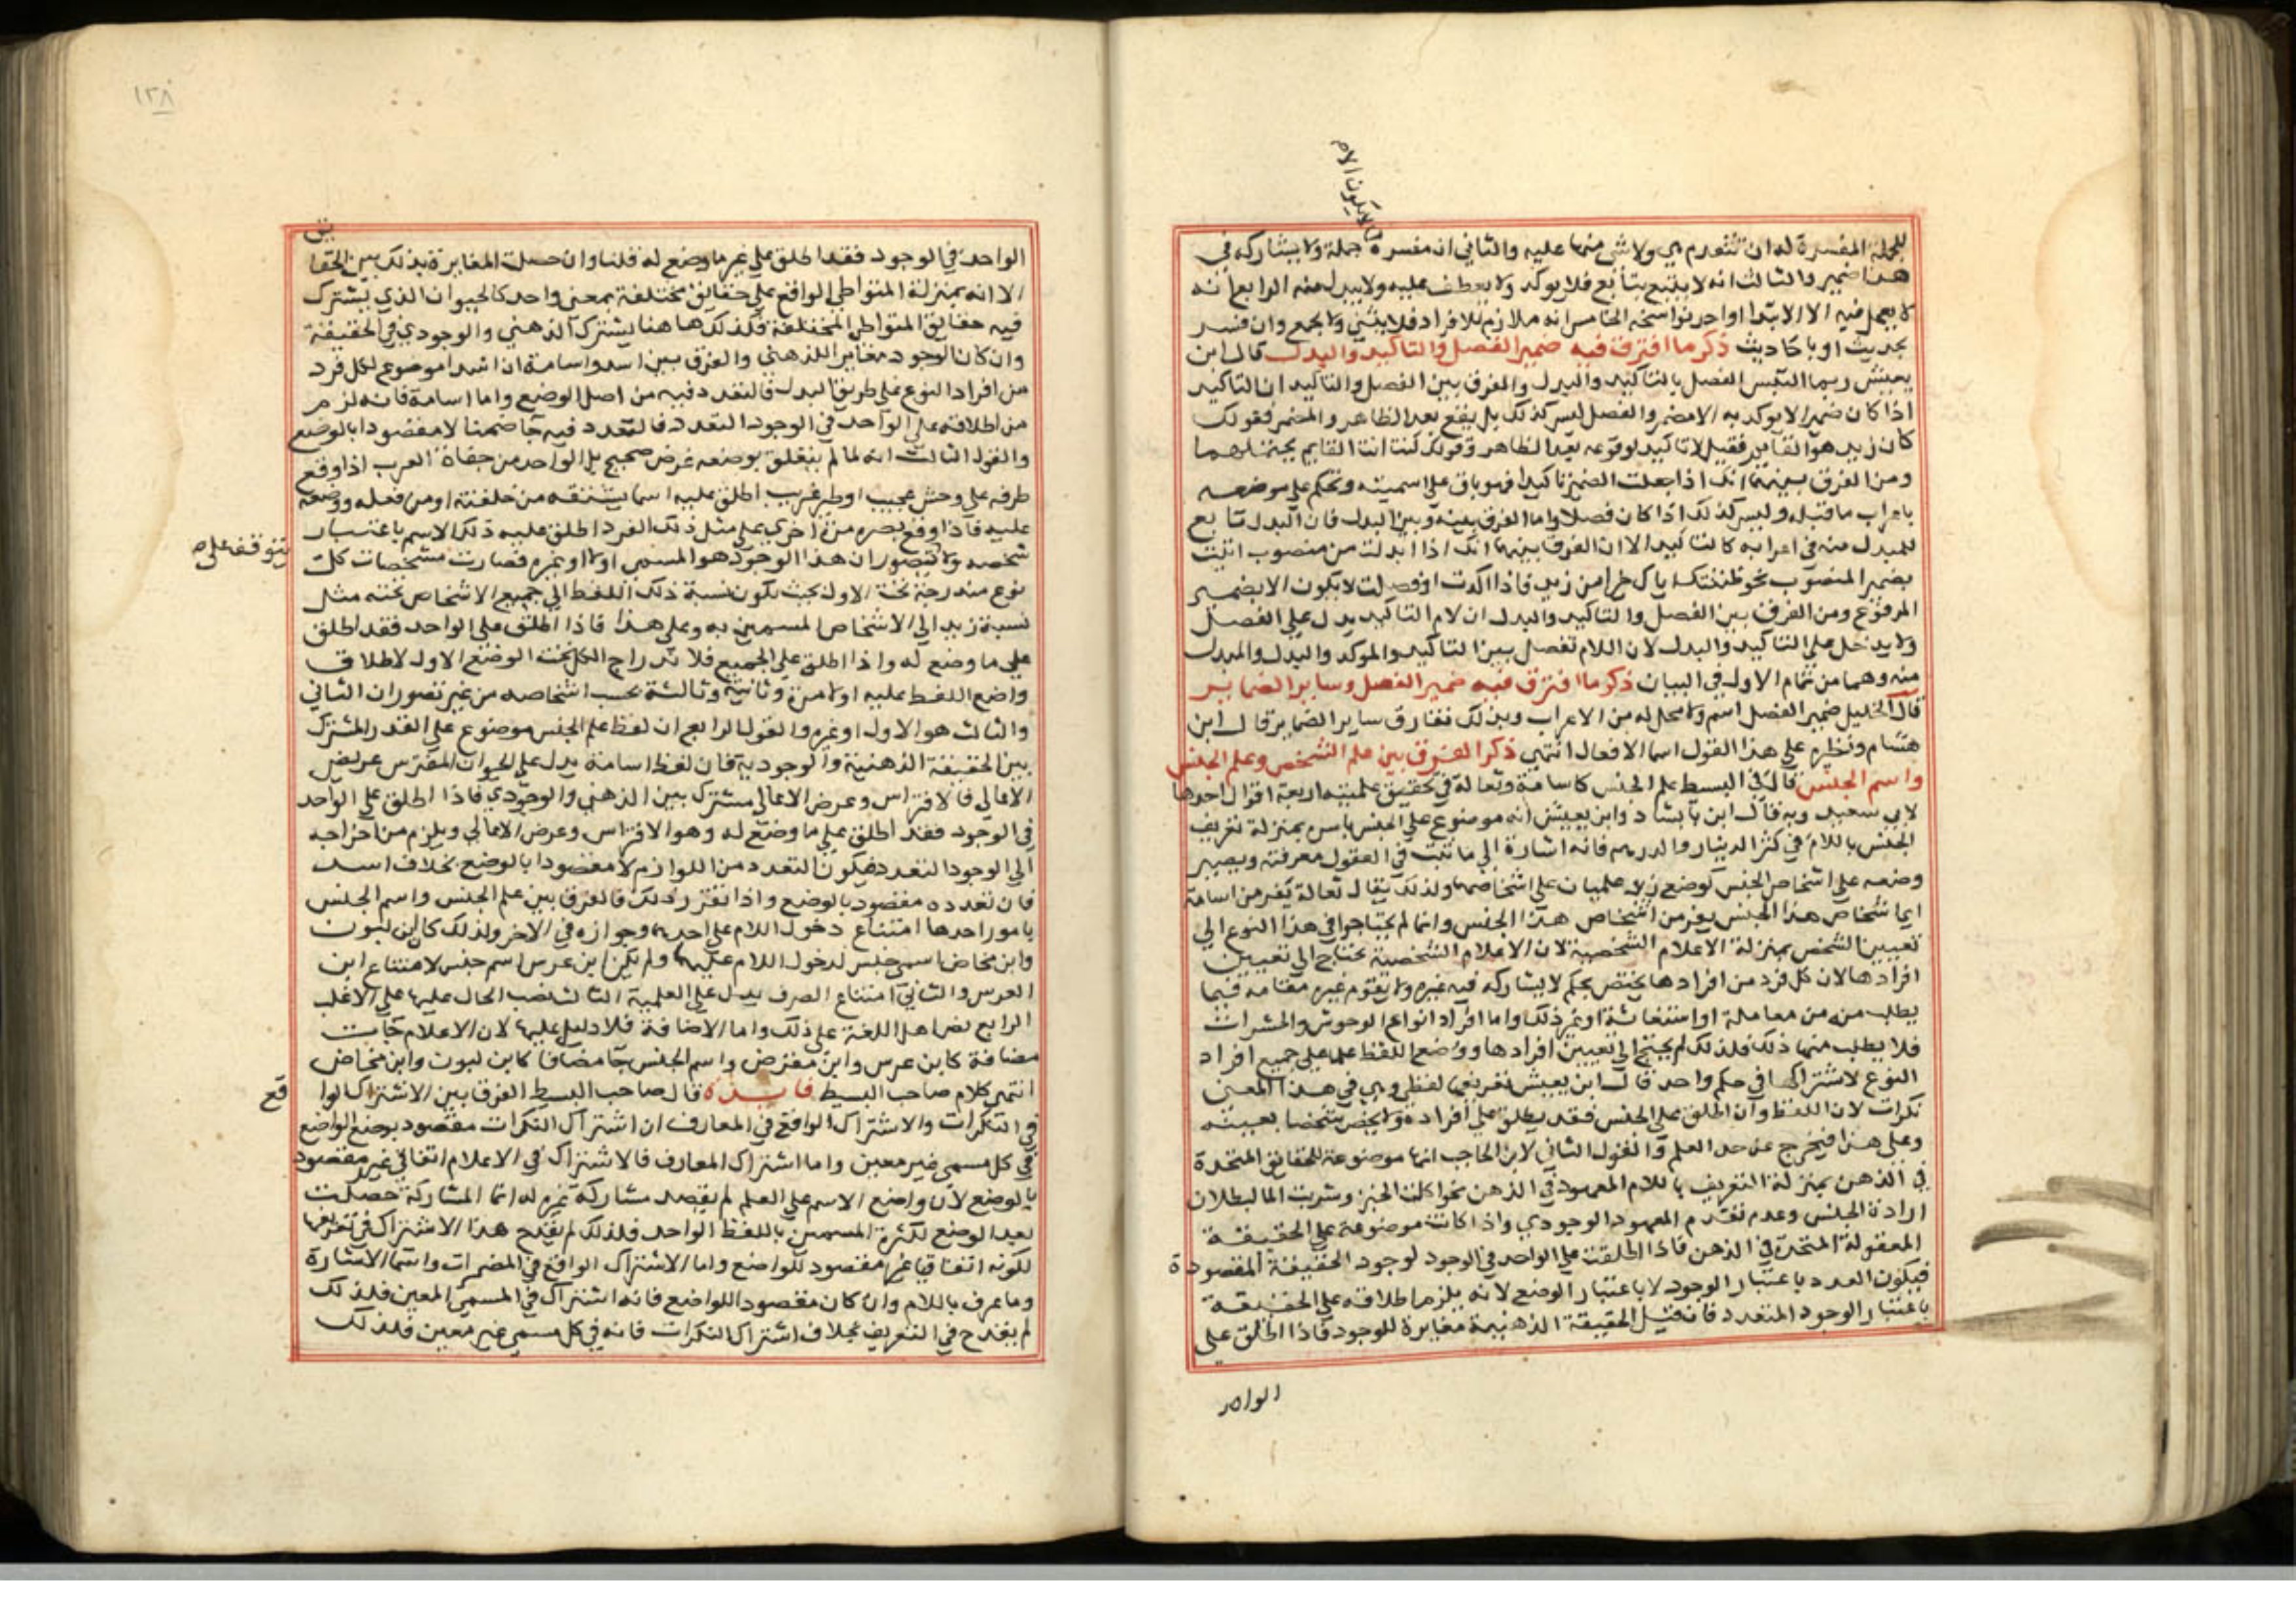 للجملة المفسرة له ان تتقدم هي ولا شي منها عليه والثاني ان مفسره لا يكون الا جملة ولا يشاركه في
هذا ضمير والثالث انه لا يتبع بتابع فلا يوكد ولا يعطف عليه ولا يبدل منه الرابع انه
لا يعمل فيه الا الابتدا او احد نواسخه الخامس انه ملازم للافراد فلا يثني ولا يجمع وان فسر
بحديث او باحاديث ذكر ما افترق فيه ضمير الفصل والتاكيد والبدل قال ابن
يعيش ربما التبس الفصل بالتاكيد والبدل والفرق بين الفصل والتاكيد ان التاكيد
اذا كان ضميرا لا يوكد به الا مضمر والفصل ليس كذلك بل يقع بعد الظاهر والمضمر فقولك
كان زيد هو القايم فصل لا تاكيد لوقوعه بعد الظاهر وقولك كنت انت القايم يحتملهما
ومن الفرق بينهما انك اذا جعلت الضمير تاكيدا فهو باق على اسميته وتحكم على موضعه
باعراب ما قبله وليس كذلك اذا كان فصلا واما الفرق بينه وبين البدل فان البدل تابع
للمبدل منه في اعرابه كالتاكيد الا ان الفرق بينهما انك اذا ابدلت من منصوب اتيت
بضمير المنصوب نحو ظننتك اياك خيرا من زيد فاذا اكدت او فصلت لا يكون الا بضمير
المرفوع ومن الفرق بين الفصل والتاكيد والبدل ان لام التاكيد يدل على الفصل
ولا يدخل على التاكيد والبدل لان اللام تفصل بين التاكيد والموكد والبدل والمبدل
منه وهما من تمام الاول في البيان ذكر ما افترق فيه ضمير الفصل وساير الضماير
قال الخليل ضمير الفصل اسم ولا محل له من الاعراب وبذلك تفارق ساير الضماير قال ابن
هشام ونظيره على هذا القول اسما الافعال انتهي ذكر الفرق بين علم الشخص وعلم الجنس
واسم الجنس قال في البسيط علم الجنس كاسامة وثعالة في تحقيق علميته اربعة اقوال احدها
لابي سعيد وبه قال ابن بابشاذ وابن يعيش انه موضوع على الجنس باسره بمنزلة تعريف
الجنس باللام في كثر الدينار والدرهم فانه اشارة الي ما ثبت في العقول معرفته ويصير
وضعه على اشخاص الجنس كوضع زيد علميان على اشخاصها ولذلك يقال ثعالة يفر من اسامة
اي اشخاص هذا الجنس يفر من اشخاص هذا الجنس وانما لم يحتاجوا في هذا النوع الي
تعيين الشخص بمنزلة الاعلام الشخصية لان الاعلام الشخصية تحتاج الي تعيين
افرادها لان كل فرد من افرادها يختص بحكم لا يشاركه فيه غيره ولا يقوم غيره مقامه فيما
يطلب منه من معاملة او استغاثة او غير ذلك واما افراد انواع الوحوش والحشرات
فلا يطلب منها ذلك فلذلك لم يحتج الي تعيين افرادها ووضع اللفظ علما على جميع افراد
النوع لاشتراكها في حكم واحد قال ابن يعيش تعريفها لفظي وهي في هذا المعني
نكرات لان اللفظ وان اطلق على الجنس فقد يطلق على افراده ولا يخص شخصا بعينه
وعلى هذا فيخرج عن حد العلم والقول الثاني لابن الحاجب انها موضوعة للحقايق المتحدة
في الذهن بمنزلة التعريف باللام المعهود في الذهن نحو اكلت الخبز وشربت الما لبطلان
ارادة الجنس وعدم تقدم المعهود الوجودي واذا كانت موضوعة على الحقيقة
المعقولة المتحدة في الذهن فاذا اطلقت على الواحد في الوجود لوجود الحقيقة المقصودة
فيكون العدد باعتبار الوجود لا باعتبار الوضع لانه يلزم اطلاقه على الحقيقة
باعتبار الوجود المتعدد فان قيل الحقيقة الذهنية مغايرة للوجود فاذا اطلق على
الواحد
١٢٨
الواحد في الوجود فقد اطلق على غير ما وضع له قلنا وان حصلت المغايرة بذلك بين الحقايق
الا انه بمنزلة المتواطي الواقع على حقايق مختلفة بمعني واحد كالحيوان الذي يشترك
فيه حقايق المتواطي المختلفة فكذلك هاهنا يشترك الذهني والوجودي في الحقيقة
وان كان الوجود مغاير اللذهني والفرق بين اسد واسامة ان اسدا موضوع لكل فرد
من افراد النوع على طريق البدل فالتعدد فيه من اصل الوضع واما اسامة فانه لزم
من اطلاقه على الواحد في الوجود التعدد فالتعدد فيه جا ضمنا لا مقصودا بالوضع
والقول الثالث انه لما لم يتعلق بوضعه غرض صحيح بل الواحد من جفاة العرب اذا وقع
طرفه على وحش عجيب او طير غريب اطلق عليه اسما يشتقه من خلقته او من فعله ووضعه
عليه فاذا وقع بصره مرة اخري على مثل ذلك الفرد اطلق عليه ذلك الاسم باعتبار
شخصه ولا يتوقف على تصور ان هذا الوجود هو المسمي اولا او غيره فصارت مشخصات كل
نوع مندرجة تحت الاول بحيث تكون نسبة ذلك اللفظ الي جميع الاشخاص تحته مثل
نسبة زيد الي الاشخاص المسمين به وعلى هذا فاذا اطلق على الواحد فقد اطلق
على ما وضع له واذا اطلق على الجميع فلا ندراج الكل تحت الوضع الاول لاطلاق
واضع اللفظ عليه اولا مرة وثانية وثالثة بحسب اشخاصه من غير تصور ان الثاني
والثالث هو الاول او غيره والقول الرابع ان لفظ علم الجنس موضوع على القدر المشترك
بين الحقيقة الذهنية والوجودية فان لفظ اسامة يدل على الحيوان المفترس عريض
الاعالي فالافتراس وعرض الاعالي مشترك بين الذهني والوجودي فاذا اطلق على الواحد
في الوجود فقد اطلق على ما وضع له وهو الافتراس وعرض الاعالي ويلزم من اخراجه
الي الوجود التعدد فيكون التعدد من اللوازم لا مقصودا بالوضع بخلاف اسد
فان تعدده مقصود بالوضع واذا تقرر ذلك فالفرق بين علم الجنس واسم الجنس
بامور احدها امتناع دخول اللام على احدهما وجوازه في الاخر ولذلك كان ابن لبون
وابن مخاض اسمي جنس لدخول اللام عليهما ولم يكن ابن عرس اسم جنس لامتناع ابن
العرس والثاني امتناع الصرف يدل على العلمية الثالث نصب الحال عليها على الاغلب
الرابع نص اهل اللغة على ذلك واما الاضافة فلا دليل عليها لان الاعلام جات
مضافة كابن عرس وابن مقرض واسم الجنس جا مضافا كابن لبون وابن مخاض
انتهي كلام صاحب البسيط فايدة قال صاحب البسيط الفرق بين الاشتراك الواقع
في النكرات والاشتراك الواقع في المعارف ان اشتراك النكرات مقصود بوضع الواضع
في كل مسمي غير معين واما اشتراك المعارف فالاشتراك في الاعلام اتفاقي غير مقصود
بالوضع لان واضع الاسم على العلم لم يقصد مشاركة غيره له انما المشاركة حصلت
بعد الوضع لكثرة المسمين باللفظ الواحد فلذلك لم يقدح هذا الاشتراك في تعريفها
لكونه اتفاقيا غير مقصود للواضع واما الاشتراك الواقع في المضمرات واسما الاشارة
وما عرف باللام وان كان مقصودا للواضع فانه اشتراك في المسمي المعين فلذلك
لم يقدح في التعريف بخلاف اشتراك النكرات فانه في كل مسمي غير معين فلذلك